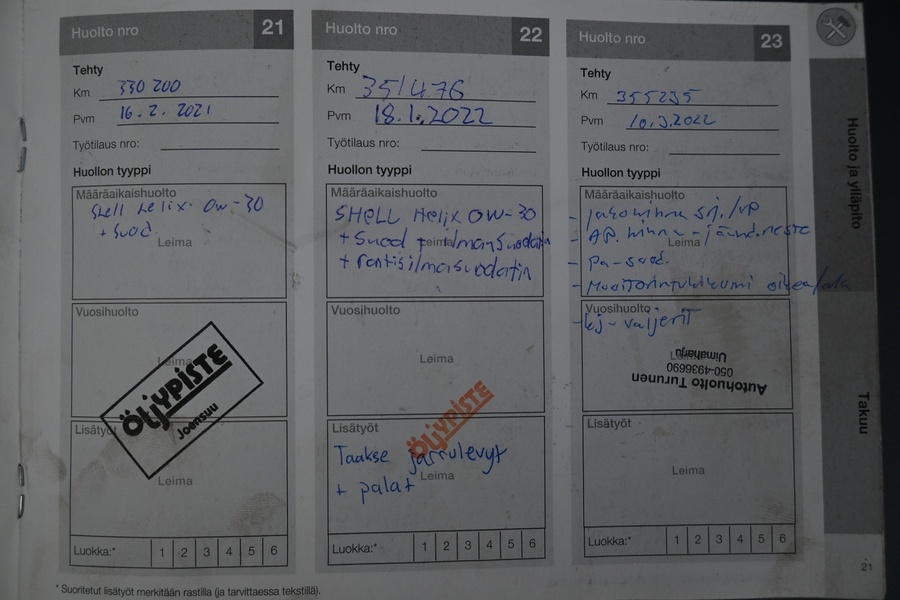 Huolto nro 21
Tehty
Km 330 200
Pvm 16.2.2021
Työtilaus nro:
Huollon tyyppi
Määräaikaishuolto
Shell Helix 0w-30
+ suod.
Leima
Vuosihuolto
Leima
ÖLJYPISTE
Joensuu
Lisätyöt
Leima
Luokka:* 1 2 3 4 5 6
* Suoritetut lisätyöt merkitään rastilla (ja tarvittaessa tekstillä).
Huolto nro 22
Tehty
Km 351476
Pvm 18.1.2022
Työtilaus nro:
Huollon tyyppi
Määräaikaishuolto
SHELL Helix 0W-30
+ Suod + ilmansuodatin
Leima
+ raitisilmasuodatin
Vuosihuolto
Leima
ÖLJYPISTE
Lisätyöt
Taakse jarrulevyt
Leima
+ palat
Luokka:* 1 2 3 4 5 6
Huolto nro 23
Tehty
Km 355235
Pvm 10.3.2022
Työtilaus nro:
Huollon tyyppi
Määräaikaishuolto
- jakohihna srj./vp
- AP. hihna - jäähd.neste
Leima
- pa-suod.
- Moottorintukikumi oikea/ala
Vuosihuolto
- kj-vaijerit
Leima
Autohuolto Turunen
050-4936690
Uimaharju
Lisätyöt
Leima
Luokka:* 1 2 3 4 5 6
Huolto ja ylläpito
Takuu
21